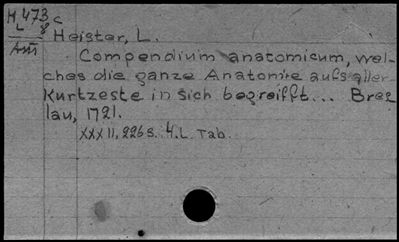 H 473 c
L 8
Am
Heister, L.
Compendium anatomicum, wel-
ches die ganze Anatomie aufs aller-
kurtzeste in sich begreifft... Bres
lau, 1721.
XXXII, 226 S. 4. L. Tab.